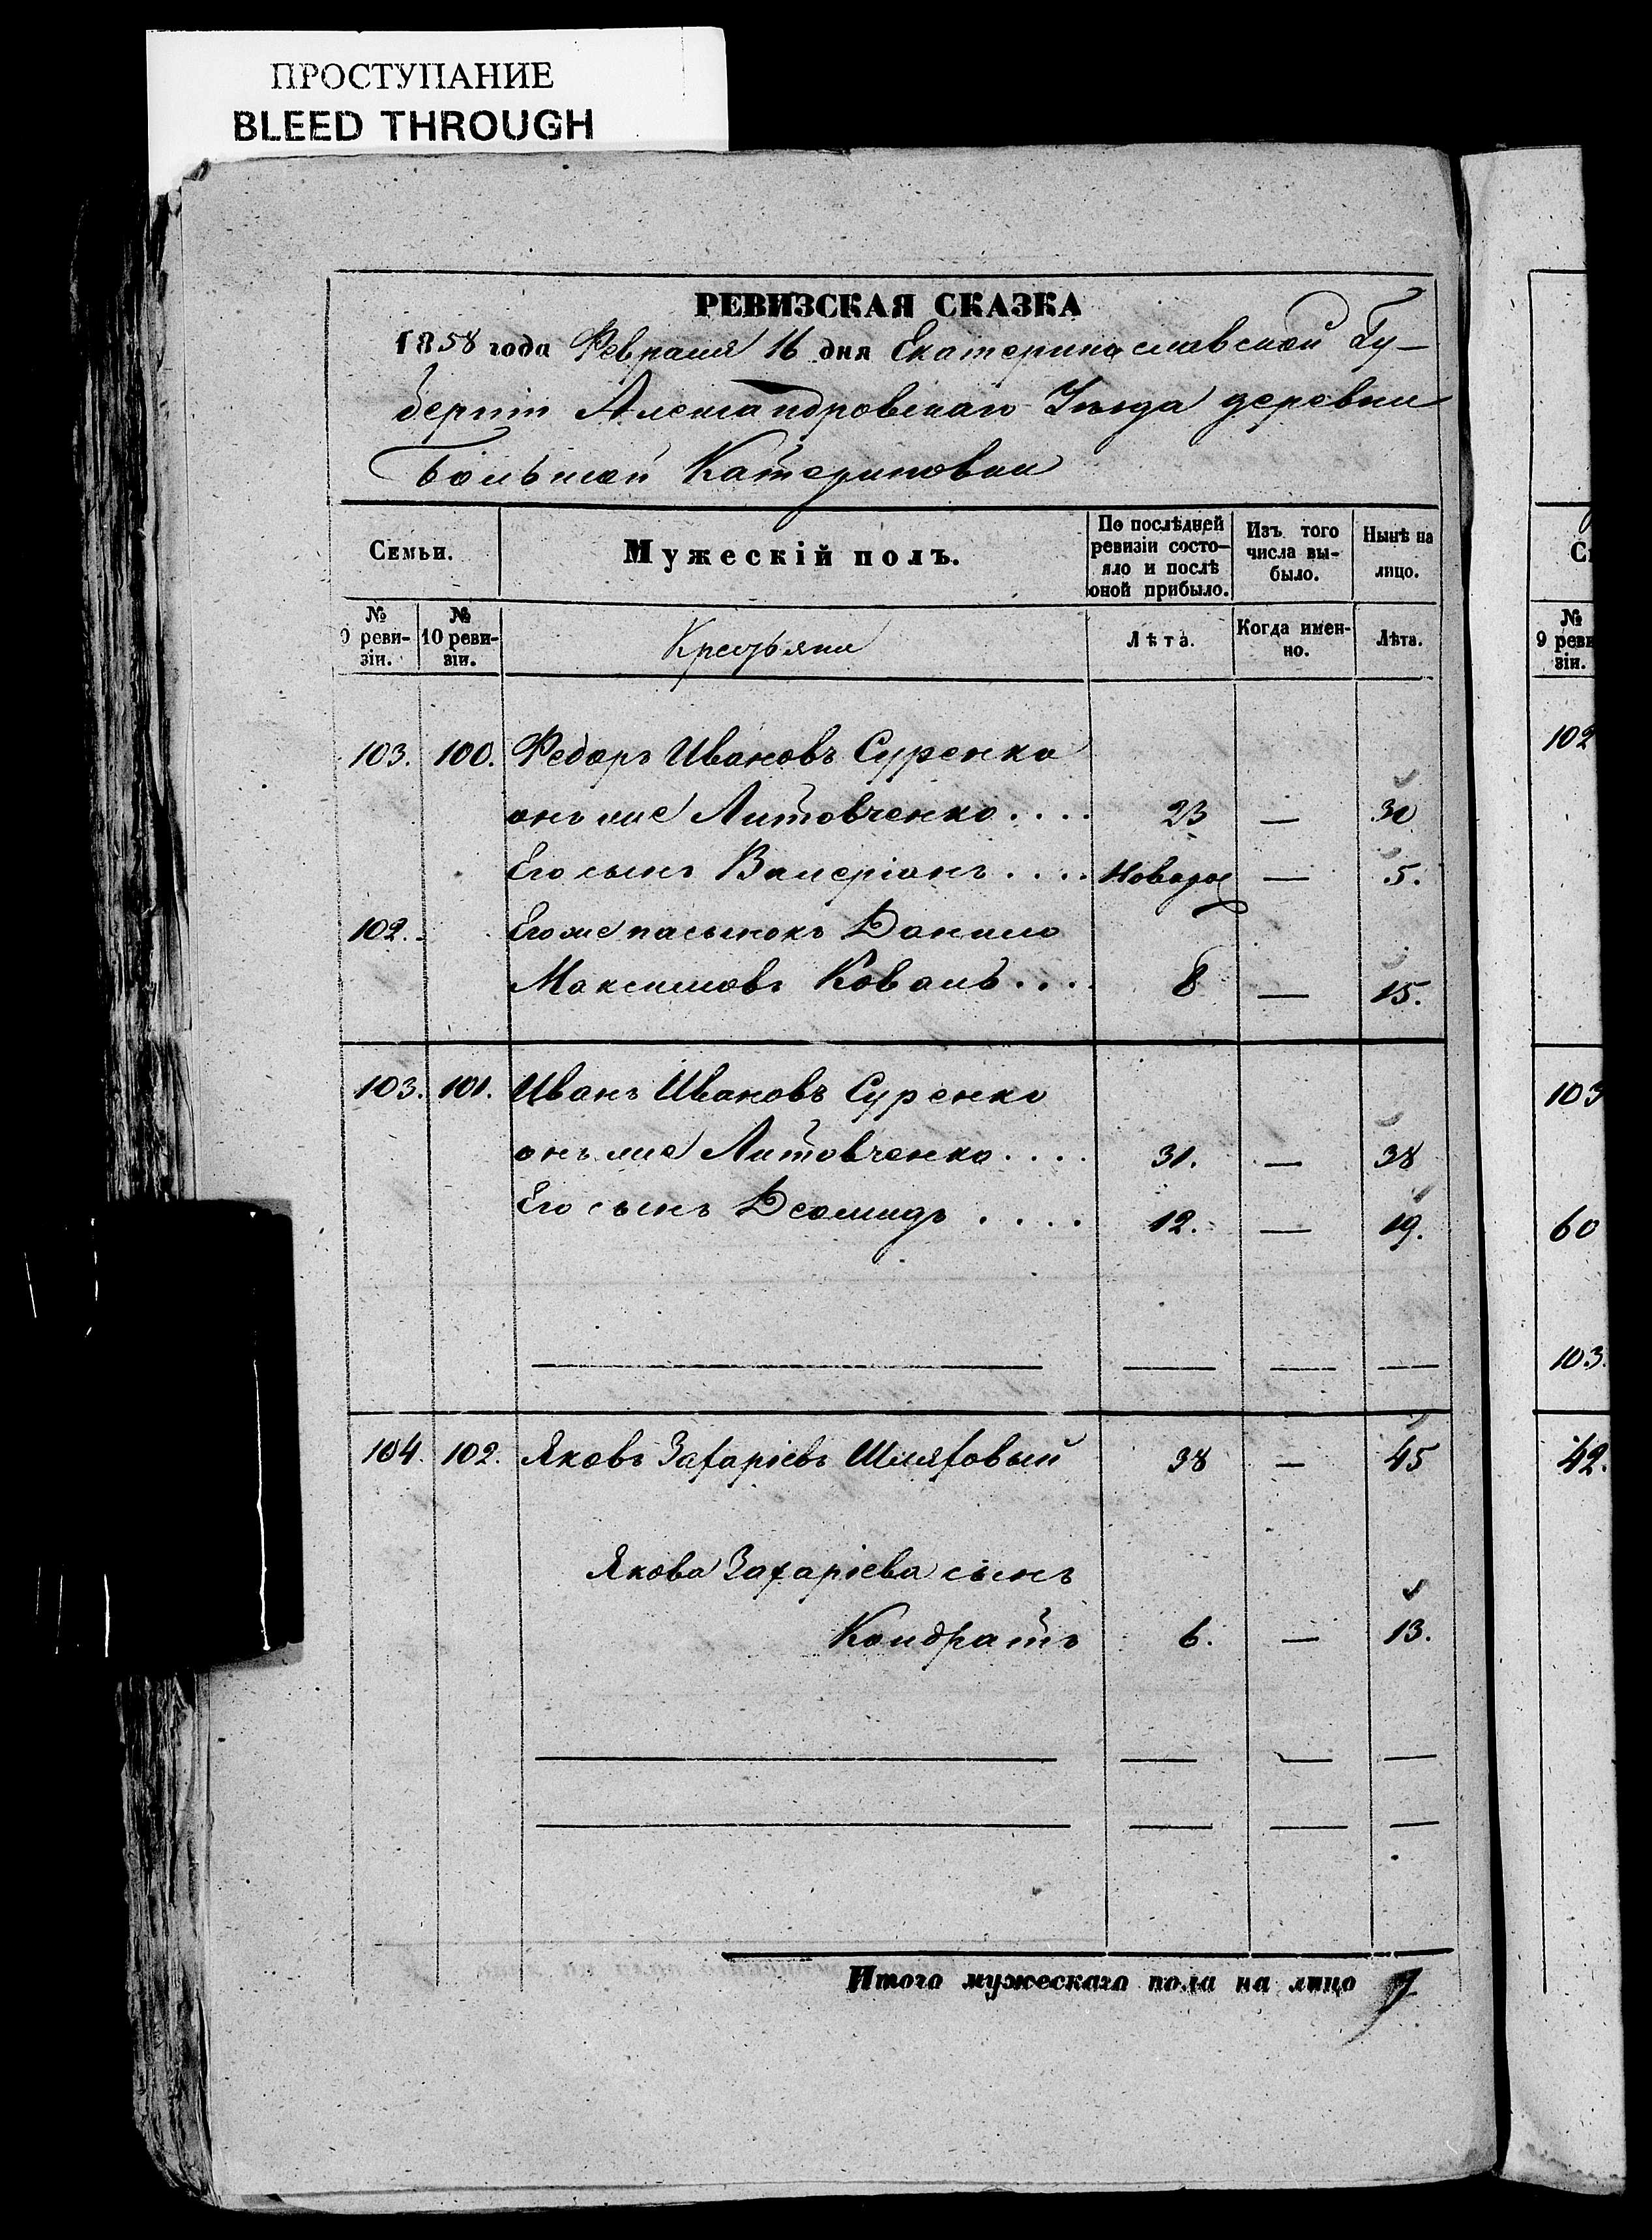 ПРОСТУПАНИЕ
BLEED THROUGH
РЕВИЗСКАЯ СКАЗКА
1858 года Февраля 16 дня Екатеринославской Гу-
берніи Александровскаго Уезда деревни
Большой Катериновки
Семьи. Мужескій полъ. По послѣдней ревизіи состо- яло и послѣ оной прибыло. Изъ того числа вы- было. Нынѣ на лицо.
№ 9 реви- зіи. № 10 реви- зіи. Крестьяни Лѣта. Когда имен- но. Лѣта.
103. 100. Федоръ Ивановъ Суренко
онъ же Литовченко .... 23 — 30
Его сынъ Валеріанъ .... Новорож — 5.
102. Его же пасынокъ Данило
Максимовъ Коваль .... 8 — 15.
103. 101. Иванъ Ивановъ Суренко
онъ же Литовченко .... 31. — 38
Его сынъ Деомидъ .... 12. — 19.
104. 102. Яковъ Захаріевъ Шляховый 38 — 45
Якова Захаріева сынъ
Кондратъ 6. — 13.
Итого мужескаго пола на лицо 7
С
№ 9 реви зіи.
102
103
60
103.
42.